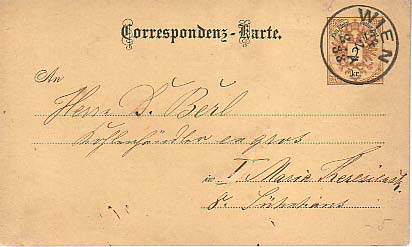 Correspondenz-Karte.
WIEN
2
kr.
An
Herrn D. Berl
Kohlenhändler en gros
in I Maria Theresienstr.